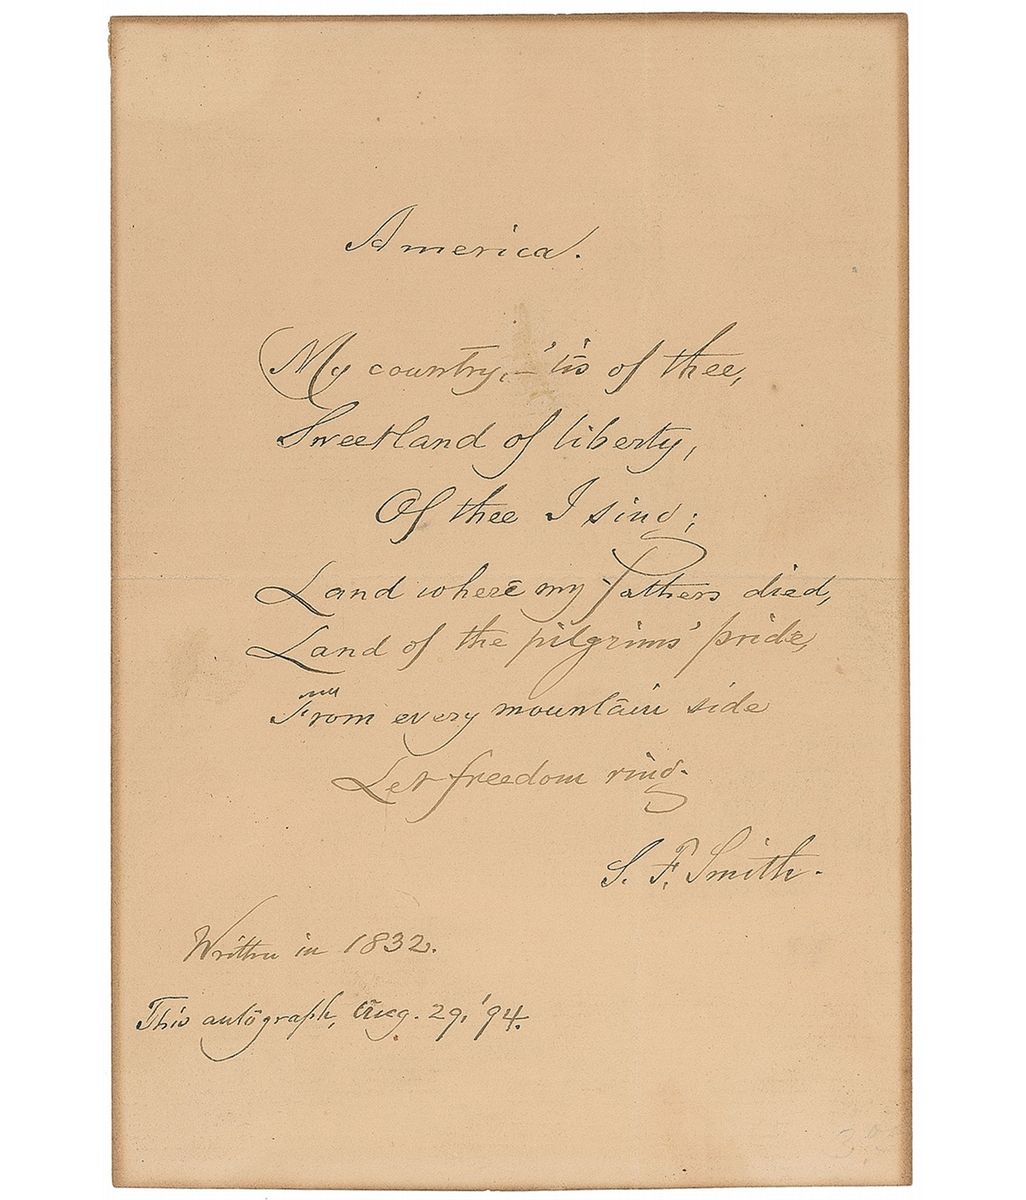 America.
My country, – 'tis of thee,
Sweet land of liberty,
Of thee I sing;
Land where my fathers died,
Land of the pilgrims' pride,
From every mountain side
Let freedom ring.
S. F. Smith.
Written in 1832.
This autograph, Aug. 29, '94.